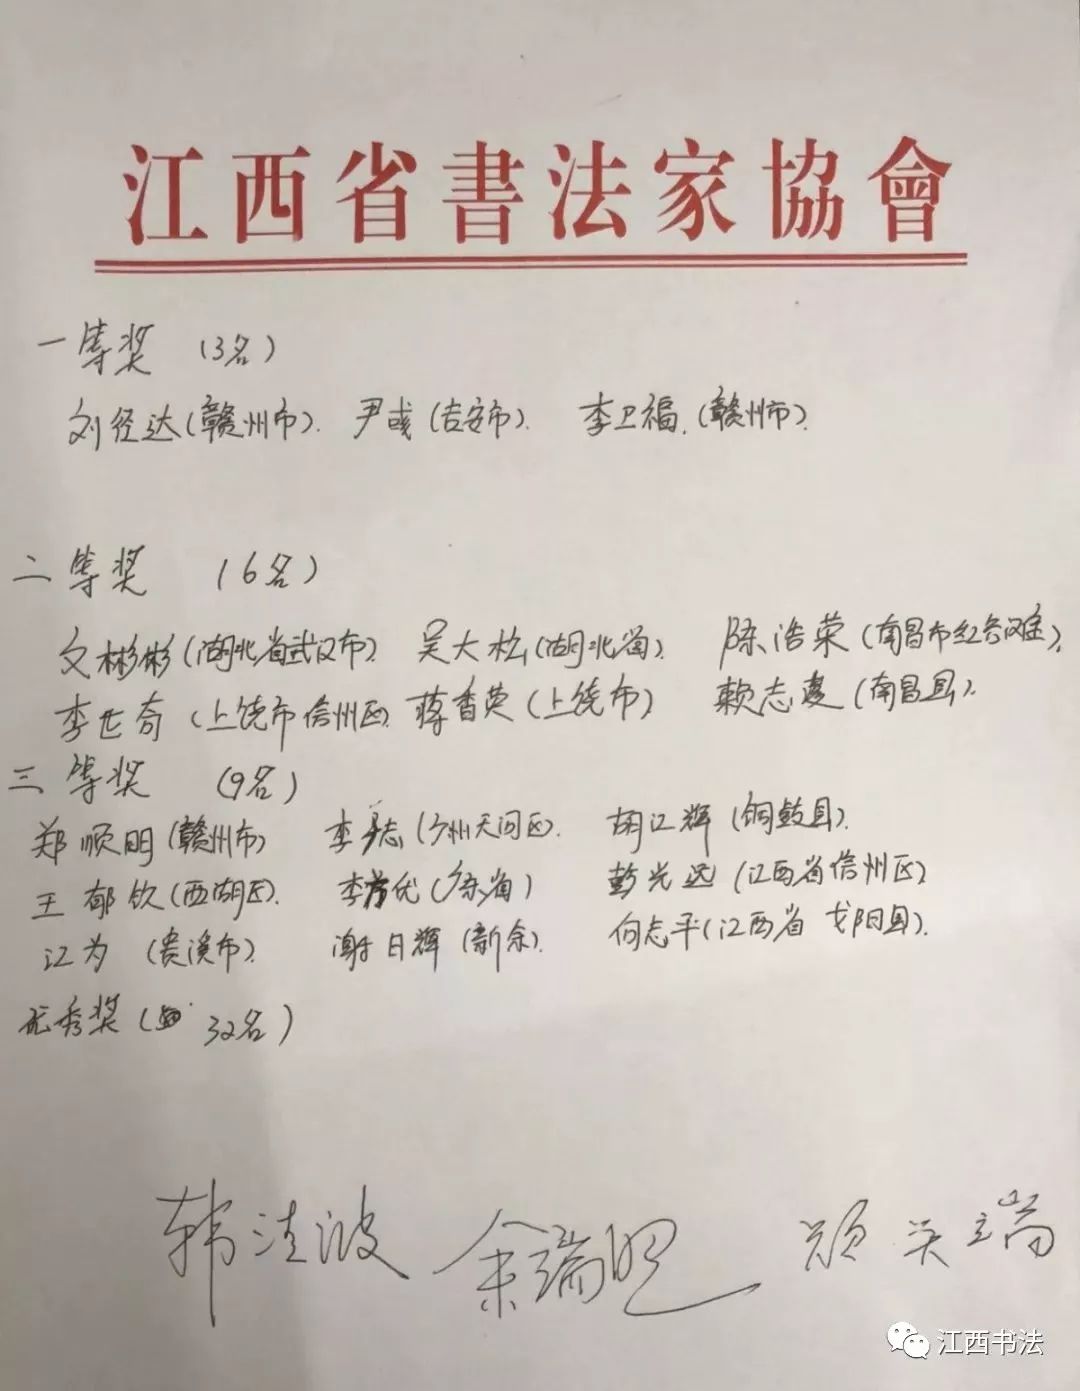 江西省書法家協會
一等奖 (3名)
刘径达(赣州市). 尹彧(吉安市). 李卫福.(赣州市).
二等奖 (6名)
文彬彬(湖北省武汉市). 吴大松(湖北省). 陈浩荣(南昌市红谷滩).
李世奇 (上饶市信州区). 蒋香荣(上饶市) 赖志 (南昌县).
三等奖 (9名)
郑顺明(赣州市) 李 志 胡江辉(铜鼓县).
王郁钦(西湖区). 李 优 彭光远(江西省信州区)
江为 (贵溪市). 谢日辉(新余). 何志平(江西省 弋阳县).
优秀奖( 32名)
韩 波 余瑞 端
江西书法